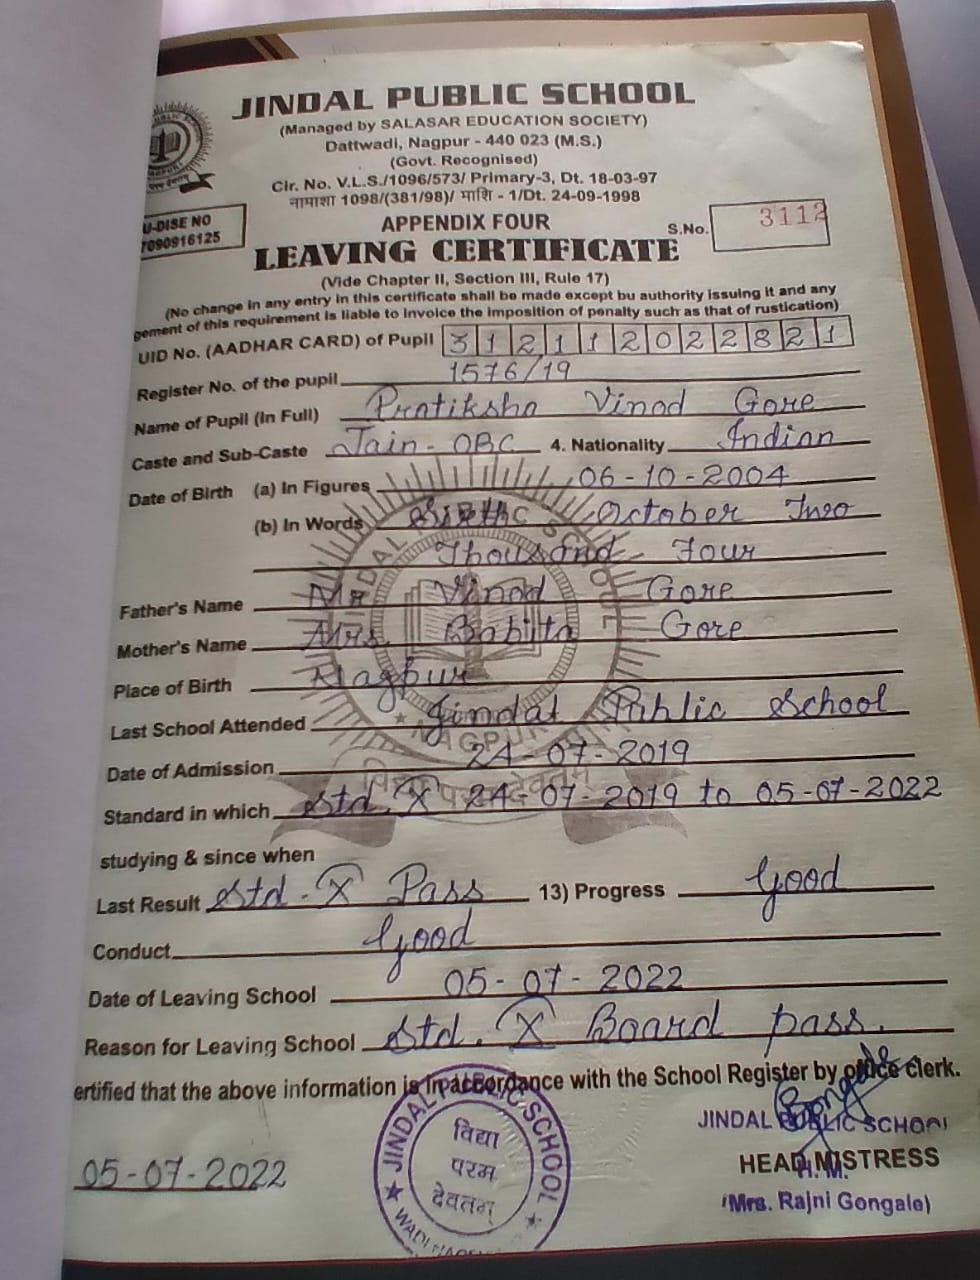 JINDAL PUBLIC SCHOOL
(Managed by SALASAR EDUCATION SOCIETY)
Dattwadi, Nagpur - 440 023 (M.S.)
(Govt. Recognised)
Cir. No. V.L.S./1096/573/ Primary-3, Dt. 18-03-97
नामाशा 1098/(381/98)/ माशि - 1/Dt. 24-09-1998
U-DISE NO
7090916125
APPENDIX FOUR
S.No. 3112
LEAVING CERTIFICATE
(Vide Chapter II, Section III, Rule 17)
(No change in any entry in this certificate shall be made except bu authority issuing it and any
gement of this requirement is liable to invoice the imposition of penalty such as that of rustication)
UID No. (AADHAR CARD) of Pupil 312112022821
Register No. of the pupil 1576/19
Name of Pupil (In Full) Pratiksha Vinod Gore
Caste and Sub-Caste Jain - OBC 4. Nationality Indian
Date of Birth (a) In Figures 06-10-2004
(b) In Words Sixth October Two
Thousand Four
Father's Name Mr Vinod Gore
Mother's Name Mrs. Babita Gore
Place of Birth Nagpur
Last School Attended Jindal Public School
Date of Admission 24-07-2019
Standard in which Std. X 24-07-2019 to 05-07-2022
studying & since when
Last Result Std. X Pass 13) Progress Good
Conduct Good
Date of Leaving School 05-07-2022
Reason for Leaving School Std. X Board pass.
ertified that the above information is in accordance with the School Register by office clerk.
JINDAL PUBLIC SCHOOL
H.M.
HEAD MISTRESS
(Mrs. Rajni Gongale)
05-07-2022
JINDAL PUBLIC SCHOOL
विद्या
परम
देवतम्